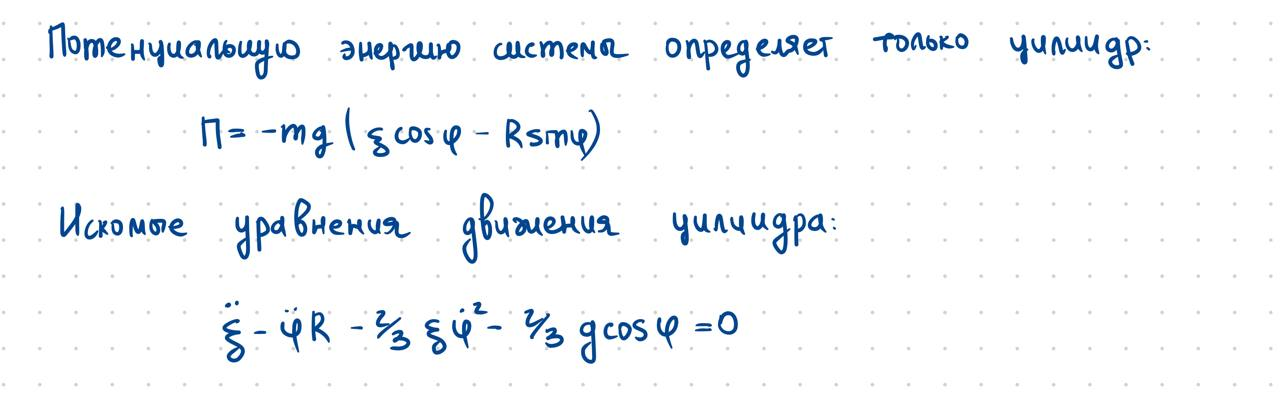 Потенциальную энергию системы определяет только цилиндр:
П = -mg (ξcosφ - Rsinφ)
Искомые уравнения движения цилиндра:
ξ̈ - φ̈R - 2/3 ξφ̇² - 2/3 gcosφ = 0